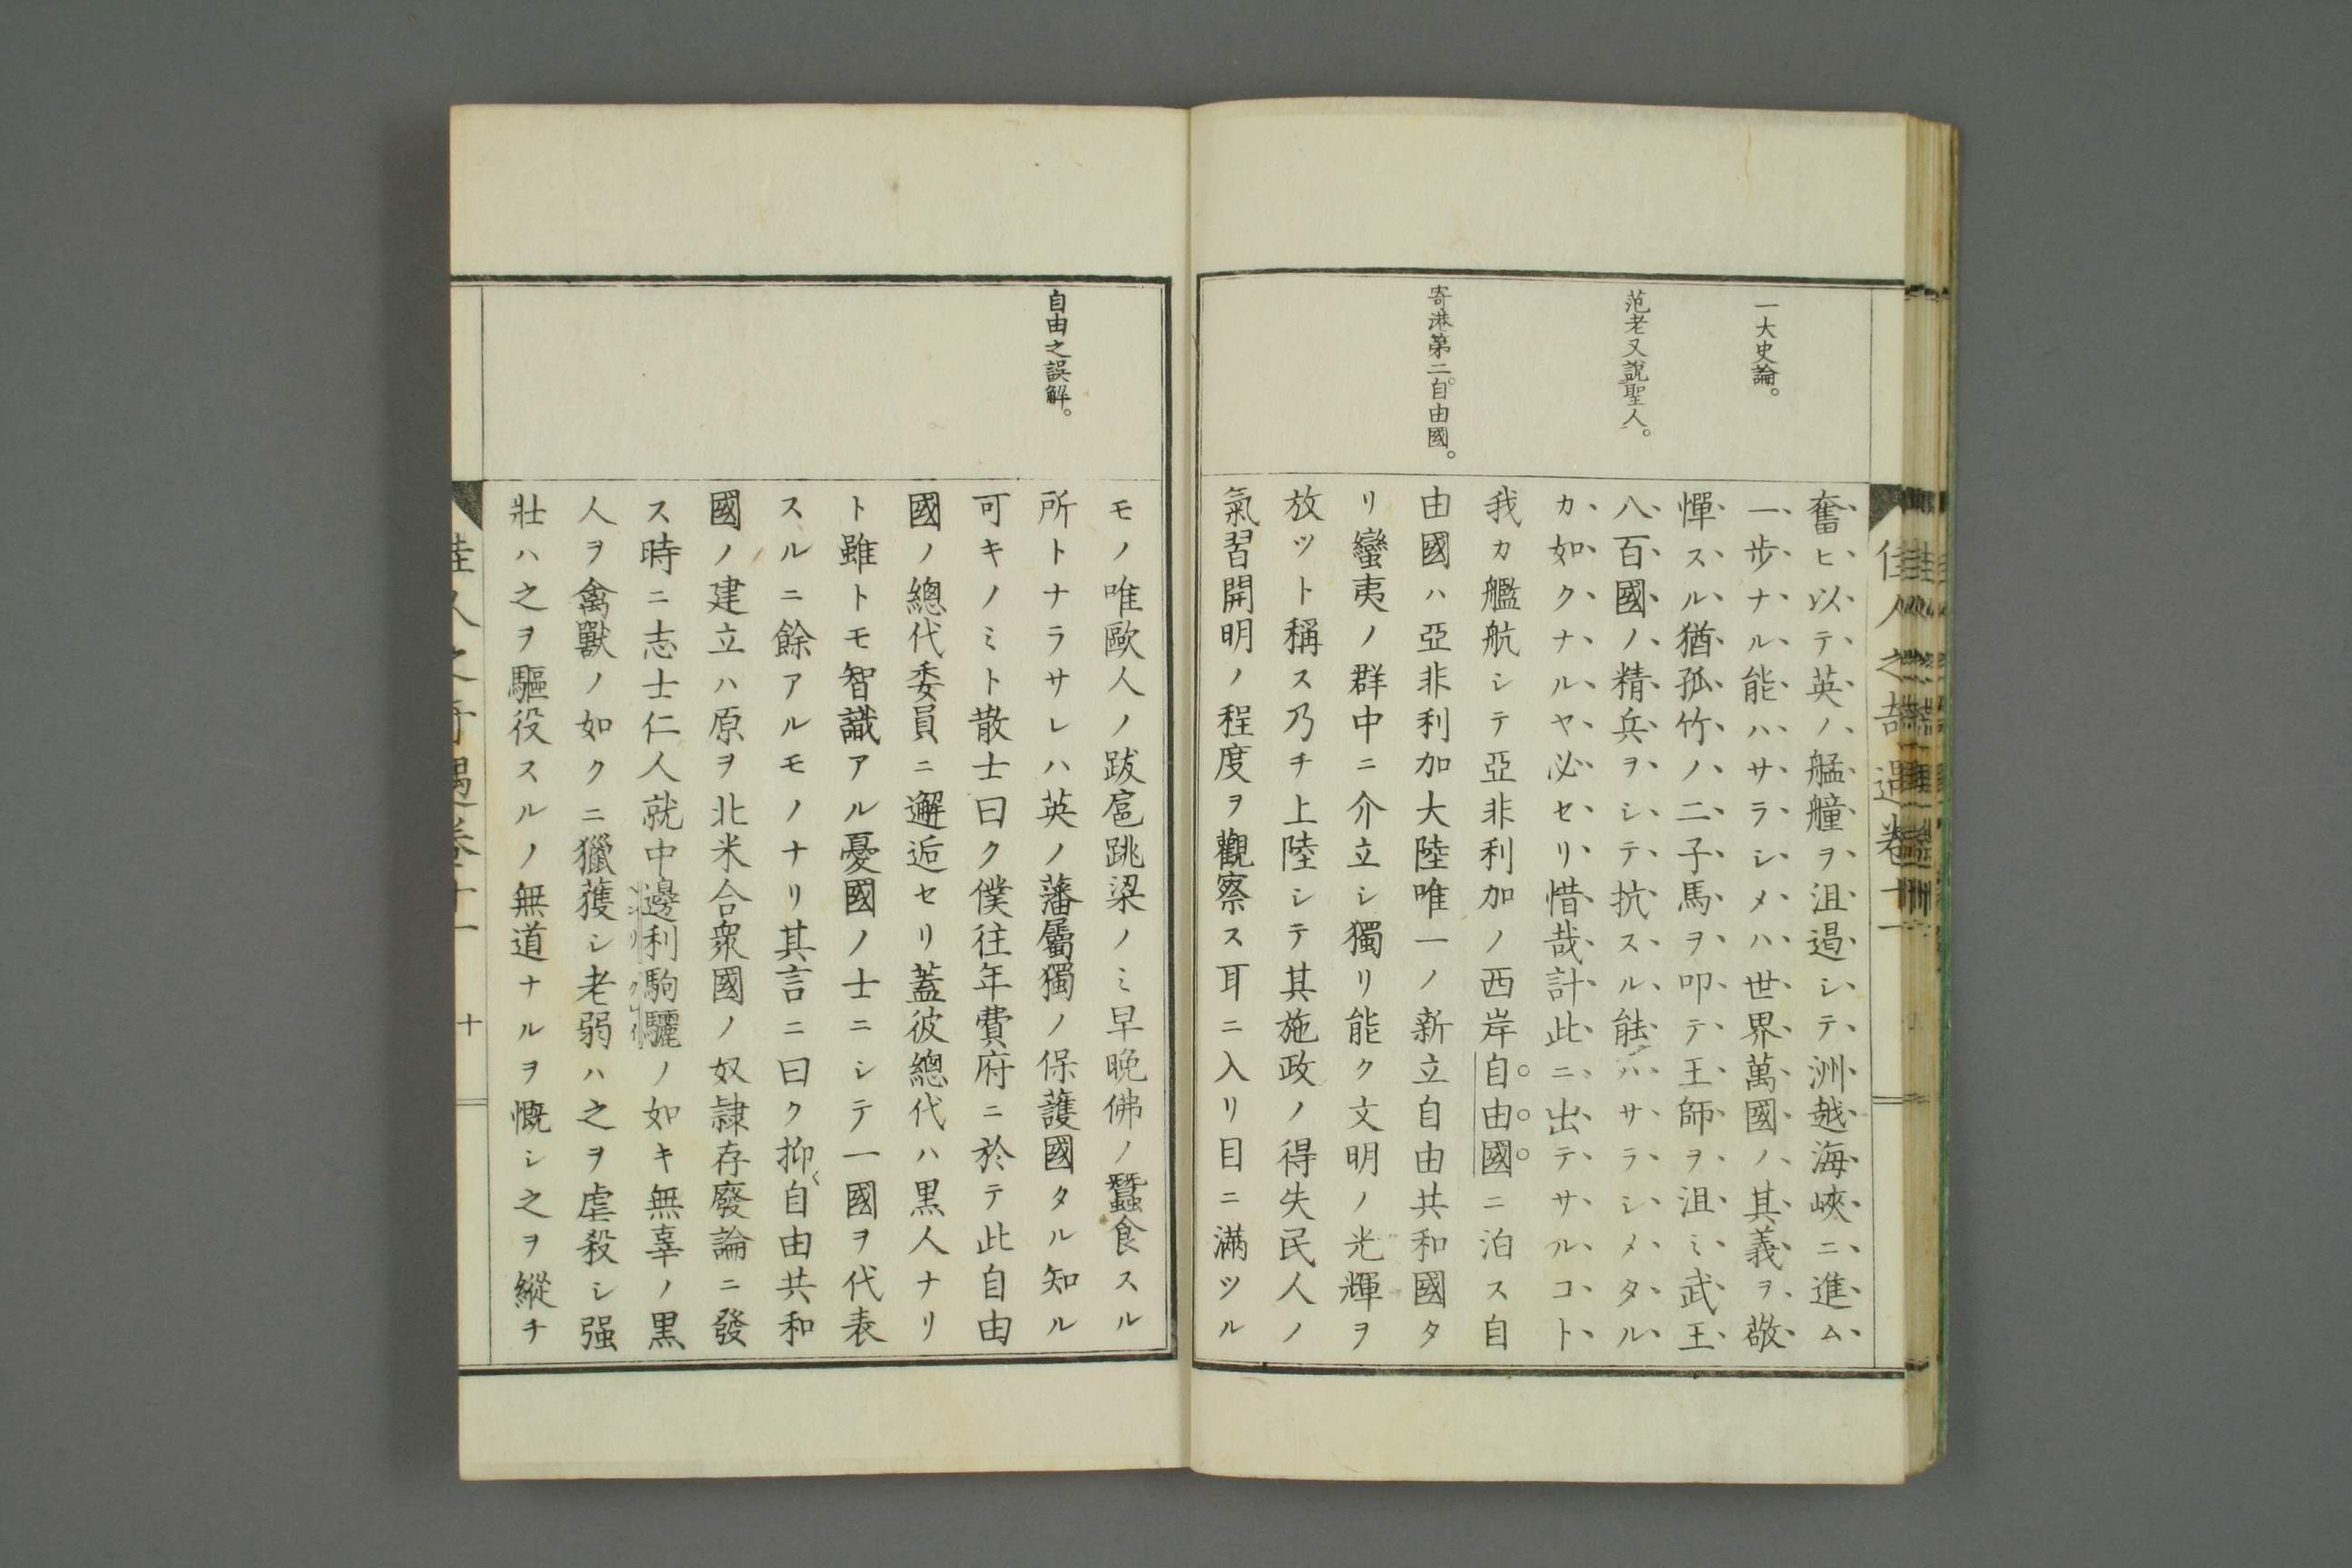 佳人之奇遇卷十一
一大史論。
范老又說聖人。
寄港第二自由國。
奮ヒ以テ英ノ艋艟ヲ沮遏シテ洲越海峽ニ進ム
一步ナル能ハサラシメハ世界萬國ノ其義ヲ敬
憚スル猶孤竹ノ二子馬ヲ叩テ王師ヲ沮ミ武王
八百國ノ精兵ヲシテ抗スル能ハサラシメタル
カ如クナルヤ必セリ惜哉計此ニ出テサルコト
我カ艦航シテ亞非利加ノ西岸自由國ニ泊ス自
由國ハ亞非利加大陸唯一ノ新立自由共和國タ
リ蠻夷ノ群中ニ介立シ獨リ能ク文明ノ光輝ヲ
放ツト稱ス乃チ上陸シテ其施政ノ得失民人ノ
氣習開明ノ程度ヲ觀察ス耳ニ入リ目ニ滿ツル
自由之誤解。
モノ唯歐人ノ跋扈跳梁ノミ早晚佛ノ蠶食スル
所トナラサレハ英ノ藩屬獨ノ保護國タル知ル
可キノミト散士曰ク僕往年費府ニ於テ此自由
國ノ總代委員ニ邂逅セリ蓋彼總代ハ黒人ナリ
ト雖トモ智識アル憂國ノ士ニシテ一國ヲ代表
スルニ餘アルモノナリ其言ニ曰ク抑〻自由共和
國ノ建立ハ原ヲ北米合衆國ノ奴隸存廢論ニ發
ス時ニ志士仁人就中邊利駒驪ノ如キ無辜ノ黒
人ヲ禽獸ノ如クニ獵獲シ老弱ハ之ヲ虐殺シ强
壯ハ之ヲ驅役スルノ無道ナルヲ慨シ之ヲ縱チ
佳人之奇遇卷十一
十